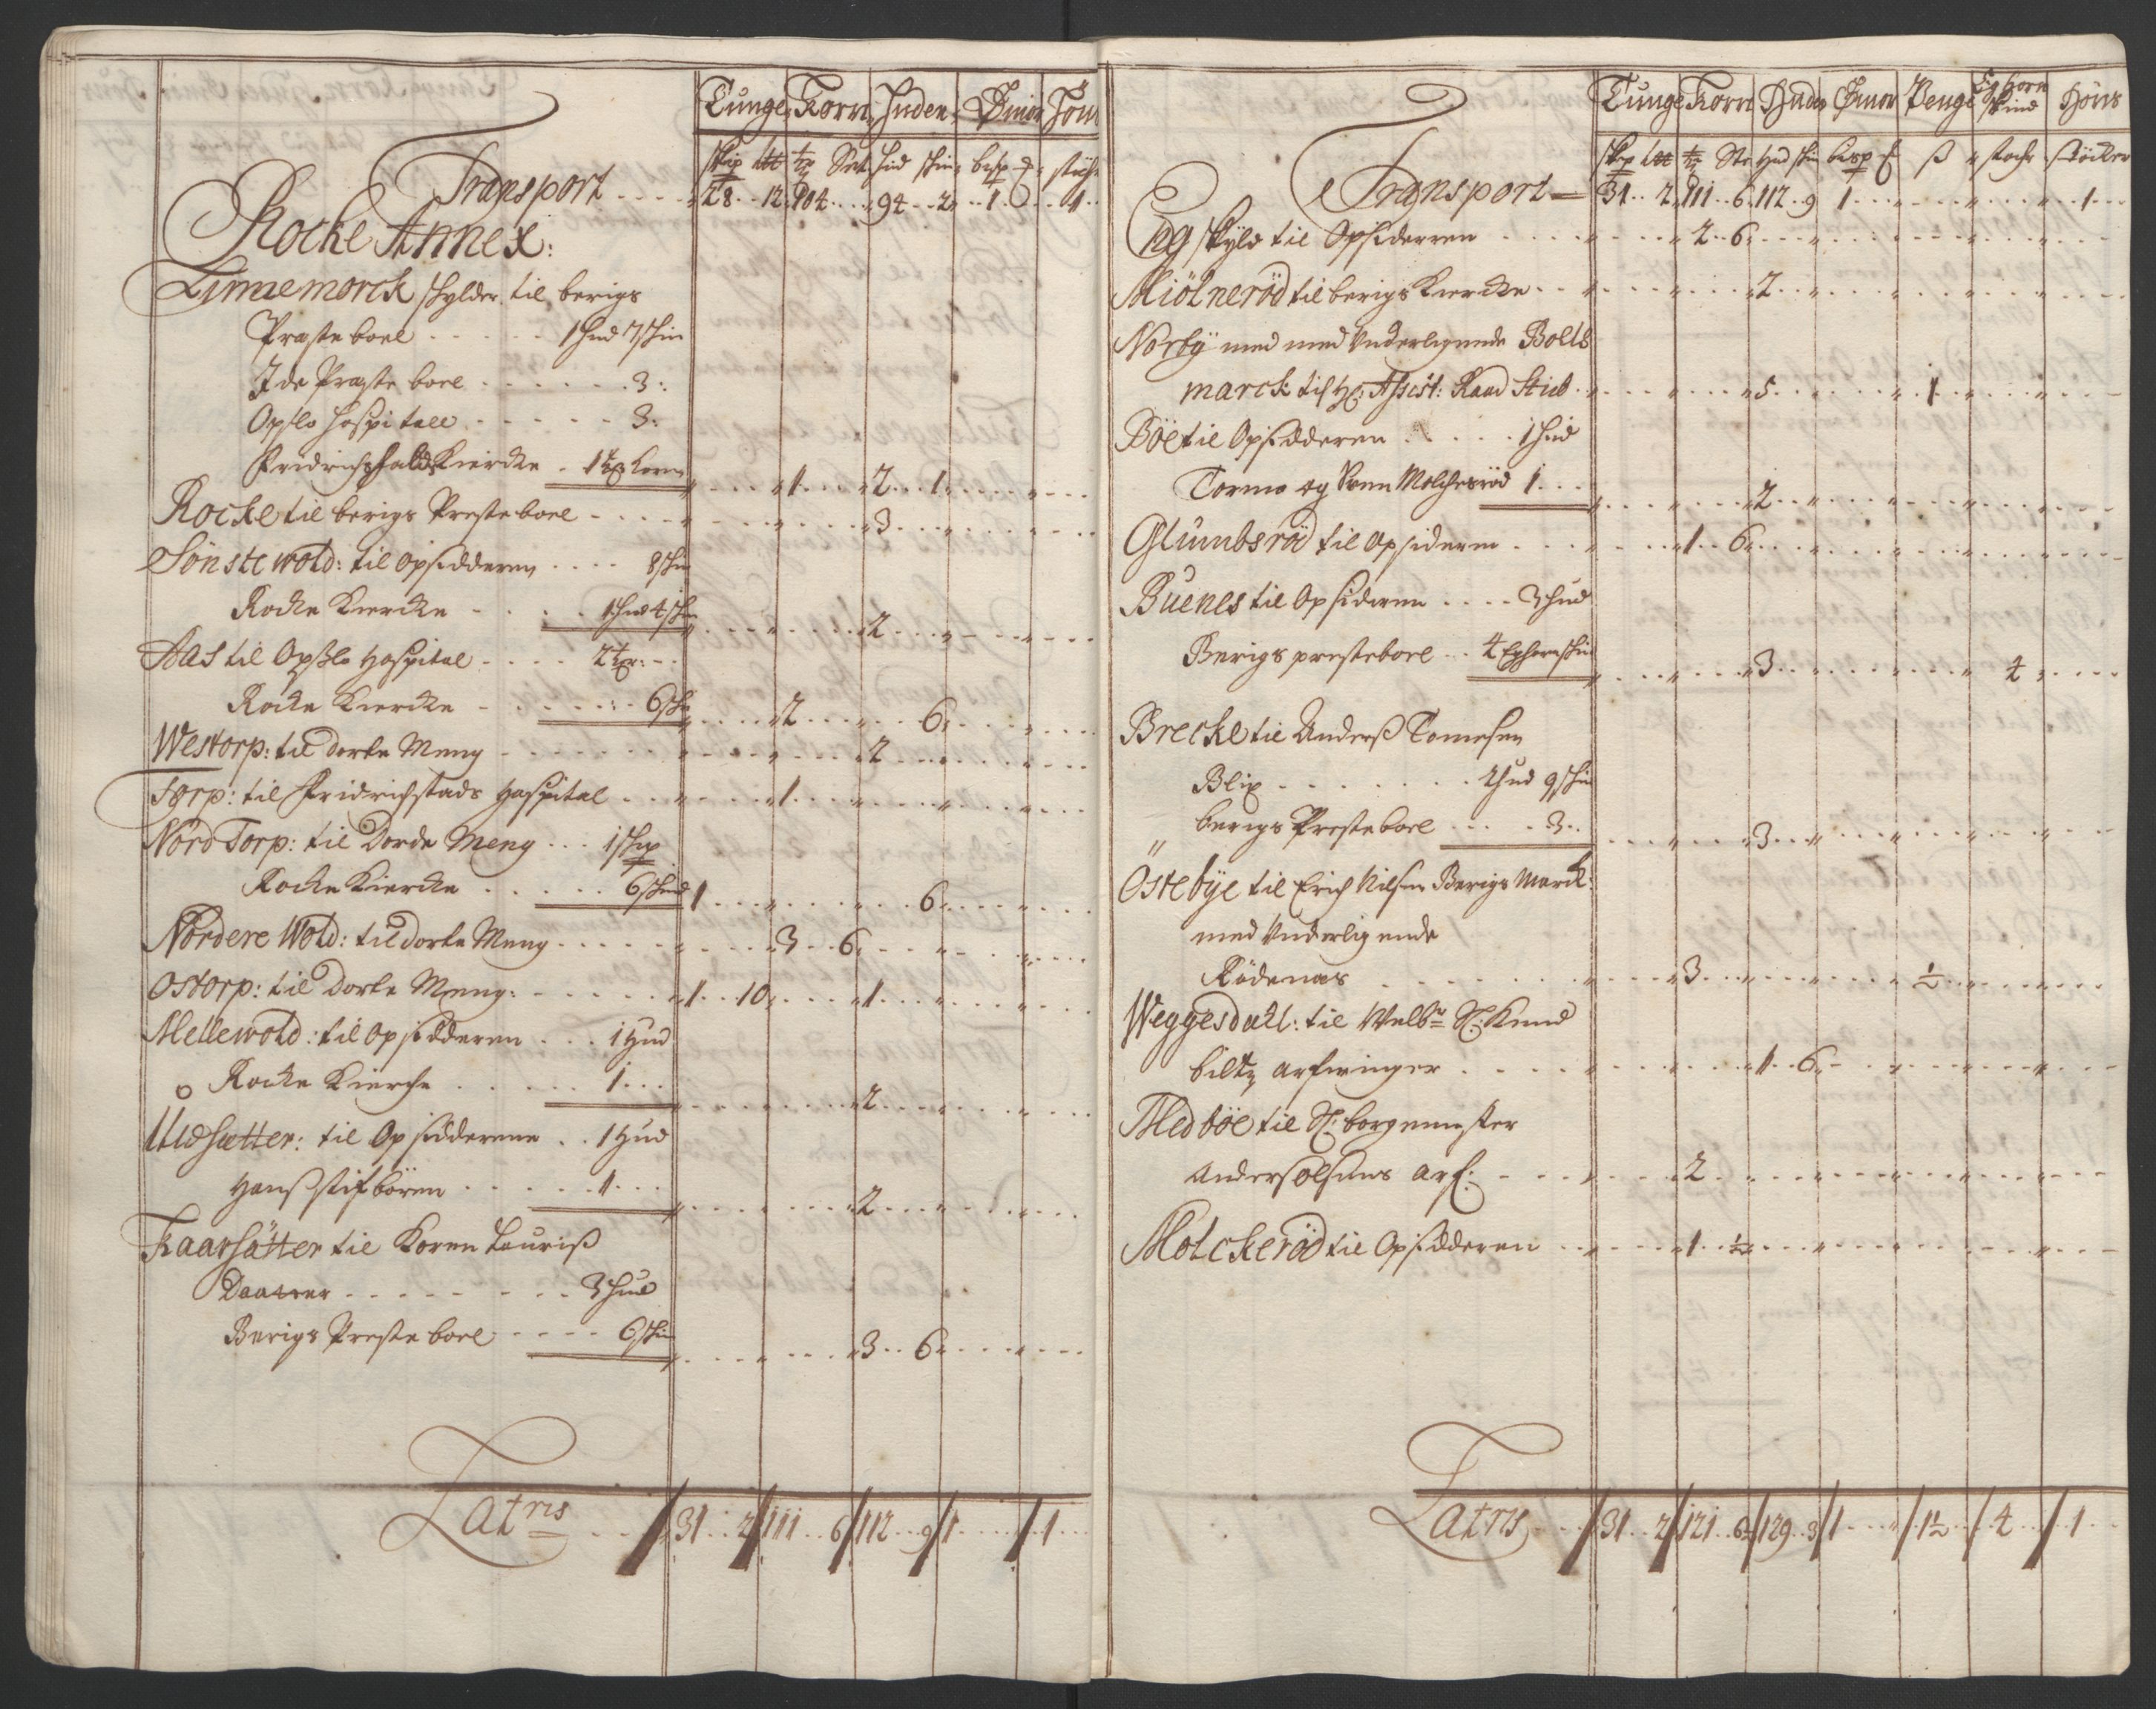 Tunge Korn Huder Smör Höns
skip ltt tr Set hud skin bisp stöch
Transport 28 12 104 94 2 1 1
Rocke Annex:
Linnemorck skylder til berigs
Præsteboel 1 hud 7 skin
Idde Præsteboel 3:
Opslo Hospitall 3:
Fridrichshalds Kiercke 1 tr Korn 1 2 1
Rocke til berigs Presteboel 3
Sönste wold: til opsidderen 8 skin
Rocke Kiercke 1 hud 4 skin 2
Aas til Opslo Hospital 2 tr:
Rocke Kiercke 6 skin 2 6
Westorp: til dorte Meng 2
Torp: til Fridrichstads Hospital 1
Nord Torp: til Dorde Meng 1 skip
Rocke Kiercke 6 skind 1 6
Nordere Wold: til dorte Meng 3 6
Ostorp: til Dorte Meng: 1 10 1
Mellewold: til opsidderen 1 Hud
Rocke Kierche 1 2
Udsætter: til Opsidderene 1 Hud
Hans stifbörn 1 2
Kaarsätter til Koren Lauriß
Daatter 3 hud
Berigs Presteboel 6 skin 3 6
Latris 31 2 111 6 112 9 1 1
Tunge Korn Huder Smör Penge Eghorn skind Höns
skp ltt tr Ste Hud skin bisp ß stoch stöcker
Transport 31 2 111 6 112 9 1 1
Eng skyld til Opsideren 2 6
Miölneröd til berigs Kiercke 2
Norby med med Underligende Bolts
marck til Hr: Assist: Raad Stub 5 1
Böe til Opsidderen 1 hud
Tormo og Svenn Molcheröd 1 2
Glumbsröd til Opsideren 1 6
Buenes til Opsideren 3 hud
Berigs presteboel 4 Eghornskin 3 4
Brecke til Anders Tomesen
Blix 2 hud 9 skin
berigs Presteboel 3 3
Östebye til Erich Nilsen Berigs Marck:
med Underligende
Rödenæs 3 ½
Weggesdall: til Welbr. Sl: Knud
biltz arfvinger 1 6
Medböe til Sl: borgemester
Anders olsens arf: 2
Molckeröd til Opsidderen 1 ½
Latris 31 2 121 6½ 129 3 1 1½ 4 1